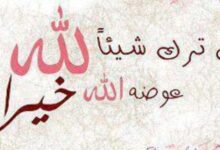 ترك شيئاً لله
عوضه الله خيرا